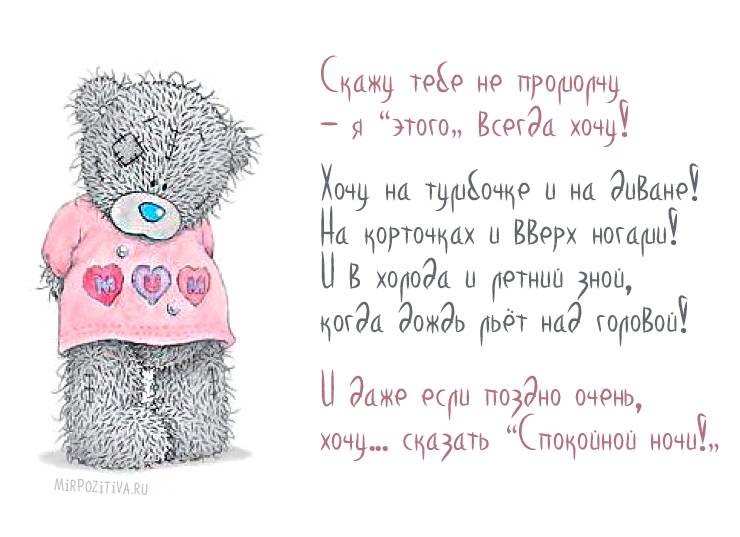 Скажу тебе не промолчу
– я “этого„ всегда хочу!
Хочу на тумбочке и на диване!
На корточках и вверх ногами!
И в холода и летний зной,
когда дождь льёт над головой!
И даже если поздно очень,
хочу... сказать “Спокойной ночи!„
M U M
MiRPOZiTiVA.RU